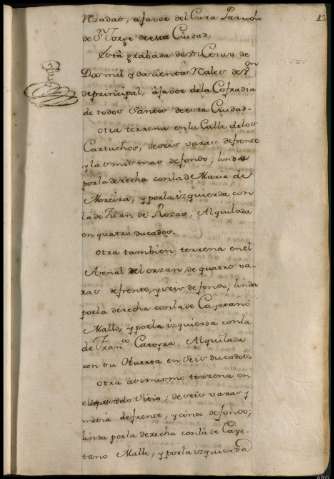 de Sn. Jorge de esta Ciudad
Está grabada de un Censo de
Dos mil y doscientos Rales de Vn.
de principal, a favor de la Cofradia
de todos Santos de esta Ciudad
otra terrena en la Calle de los
Cartuchos, de seis varas de frente
y las mismas de fondo, linda
por la derecha con la de Maria de
Moreira, y por la izquierda con
la de Juan de Rosas, Alquilada
en quatro ducados
otra tambien terrena en el
Arenal del orzan de quatro va
ras de frente, y seis de fondo, linda
por la derecha con la de Cayetano
Mallo, y por la izquierda con la
de Franco.
con su Huerta en seis ducados
otra asimismo terrena en
de seis varas y
media de frente, y cinco de fondo,
linda por la derecha con la de Caye
tano Mallo, y por la izquierda